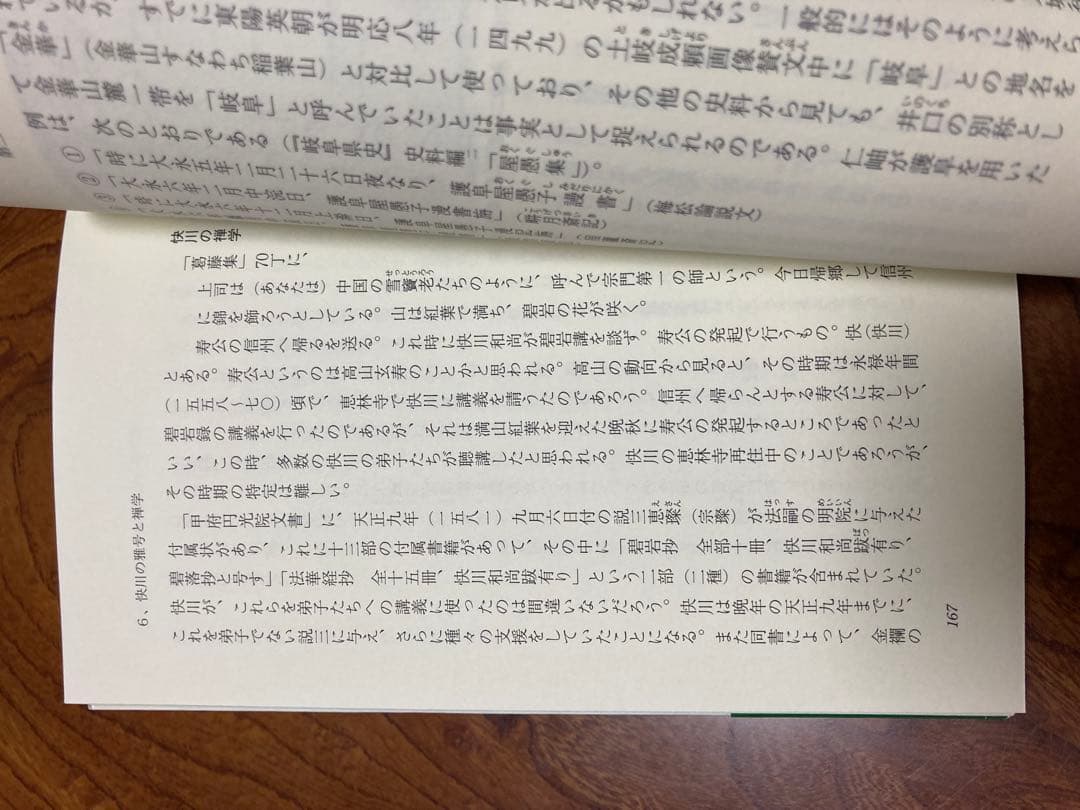 れているが、すでに東陽英朝が明応八年(一四九九)の土岐成頼画像賛文中に「岐阜」との地名を
「金華」(金華山すなわち稲葉山)と対比して使っており、その他の史料から見ても、井口の別称とし
て金華山麓一帯を「岐阜」と呼んでいたことは事実として捉えられるのである。仁岫が護阜を用いた
例は、次のとおりである(『岐阜県史』史料編二「屋愚集」)。
①「時に大永五年二月二十六日夜なり、護阜屋愚子謾書」(梅松論説文)
快川の禅学
「葛藤集」70丁に、
上司は(あなたは)中国の雪竇老たちのように、呼んで宗門第一の師という。今日帰郷して信州
に錦を飾ろうとしている。山は紅葉で満ち、碧岩の花が咲く。
寿公の信州へ帰るを送る。これ時に快川和尚が碧岩講を談ず。寿公の発起で行うもの。快(快川)
とある。寿公というのは高山玄寿のことかと思われる。高山の動向から見ると、その時期は永禄年間
(一五五八〜七〇)頃で、恵林寺で快川に講義を請うたのであろう。信州へ帰らんとする寿公に対して、
碧岩録の講義を行ったのであるが、それは満山紅葉を迎えた晩秋に寿公の発起するところであったと
いい、この時、多数の快川の弟子たちが聴講したと思われる。快川の恵林寺再住中のことであろうが、
その時期の特定は難しい。
「甲府円光院文書」に、天正九年(一五八一)九月六日付の説三恵璨(宗璨)が法嗣の明院に与えた
付属状があり、これに十三部の付属書籍があって、その中に「碧岩抄 全部十冊、快川和尚跋有り、
碧落抄と号す」「法華経抄 全十五冊、快川和尚跋有り」という二部(二種)の書籍が含まれていた。
快川が、これらを弟子たちへの講義に使ったのは間違いないだろう。快川は晩年の天正九年までに、
これを弟子でない説三に与え、さらに種々の支援をしていたことになる。また同書によって、金襴の
6、快川の雅号と禅学
167